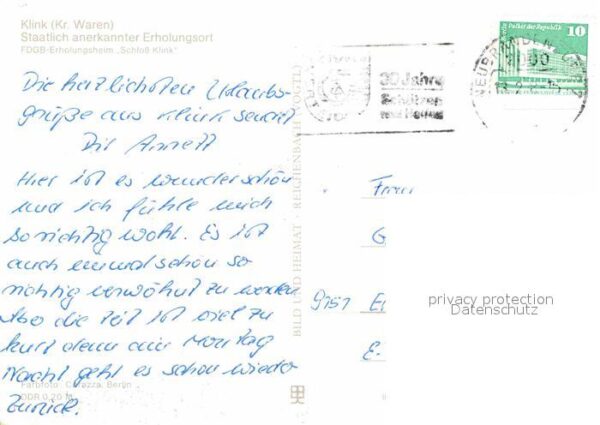 Klink (Kr. Waren)
Staatlich anerkannter Erholungsort
FDGB-Erholungsheim „Schloß Klink"
Die herzlichsten Urlaubs-
grüße aus Klink sendet
Dir Annett
Hier ist es wunderschön
und ich fühle mich
so richtig wohl. Es ist
auch einmal schön so
richtig verwöhnt zu werden
Also die Zeit ist viel zu
kurz denn am Montag
Nacht geht es schon wieder
zurück.
Farbfoto: Corazza, Berlin
DDR 0,20 M
BILD UND HEIMAT · REICHENBACH (VOGTL)
30 Jahre
NEUBRANDENB
Palast der Republik
10
Frau
G
9757 E
E.
privacy protection
Datenschutz